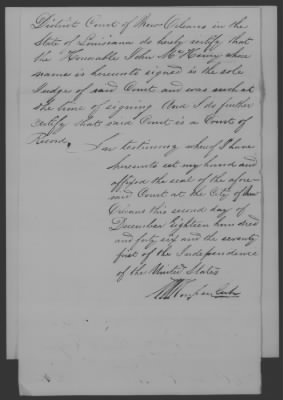 District Court of New Orleans in the
State of Louisiana do hereby certify that
the Honorable John McHenry whose
name is hereunto signed is the sole
Judge of said Court and was such at
the time of signing And I do further
certify that said Court is a Court of
Record.
In testimony whereof I have
hereunto set my hand and
affixed the seal of the afore-
said Court at the City of New
Orleans this second day of
December Eighteen hundred
and forty six and the seventy
first of the Independence
of the United States
Clerk